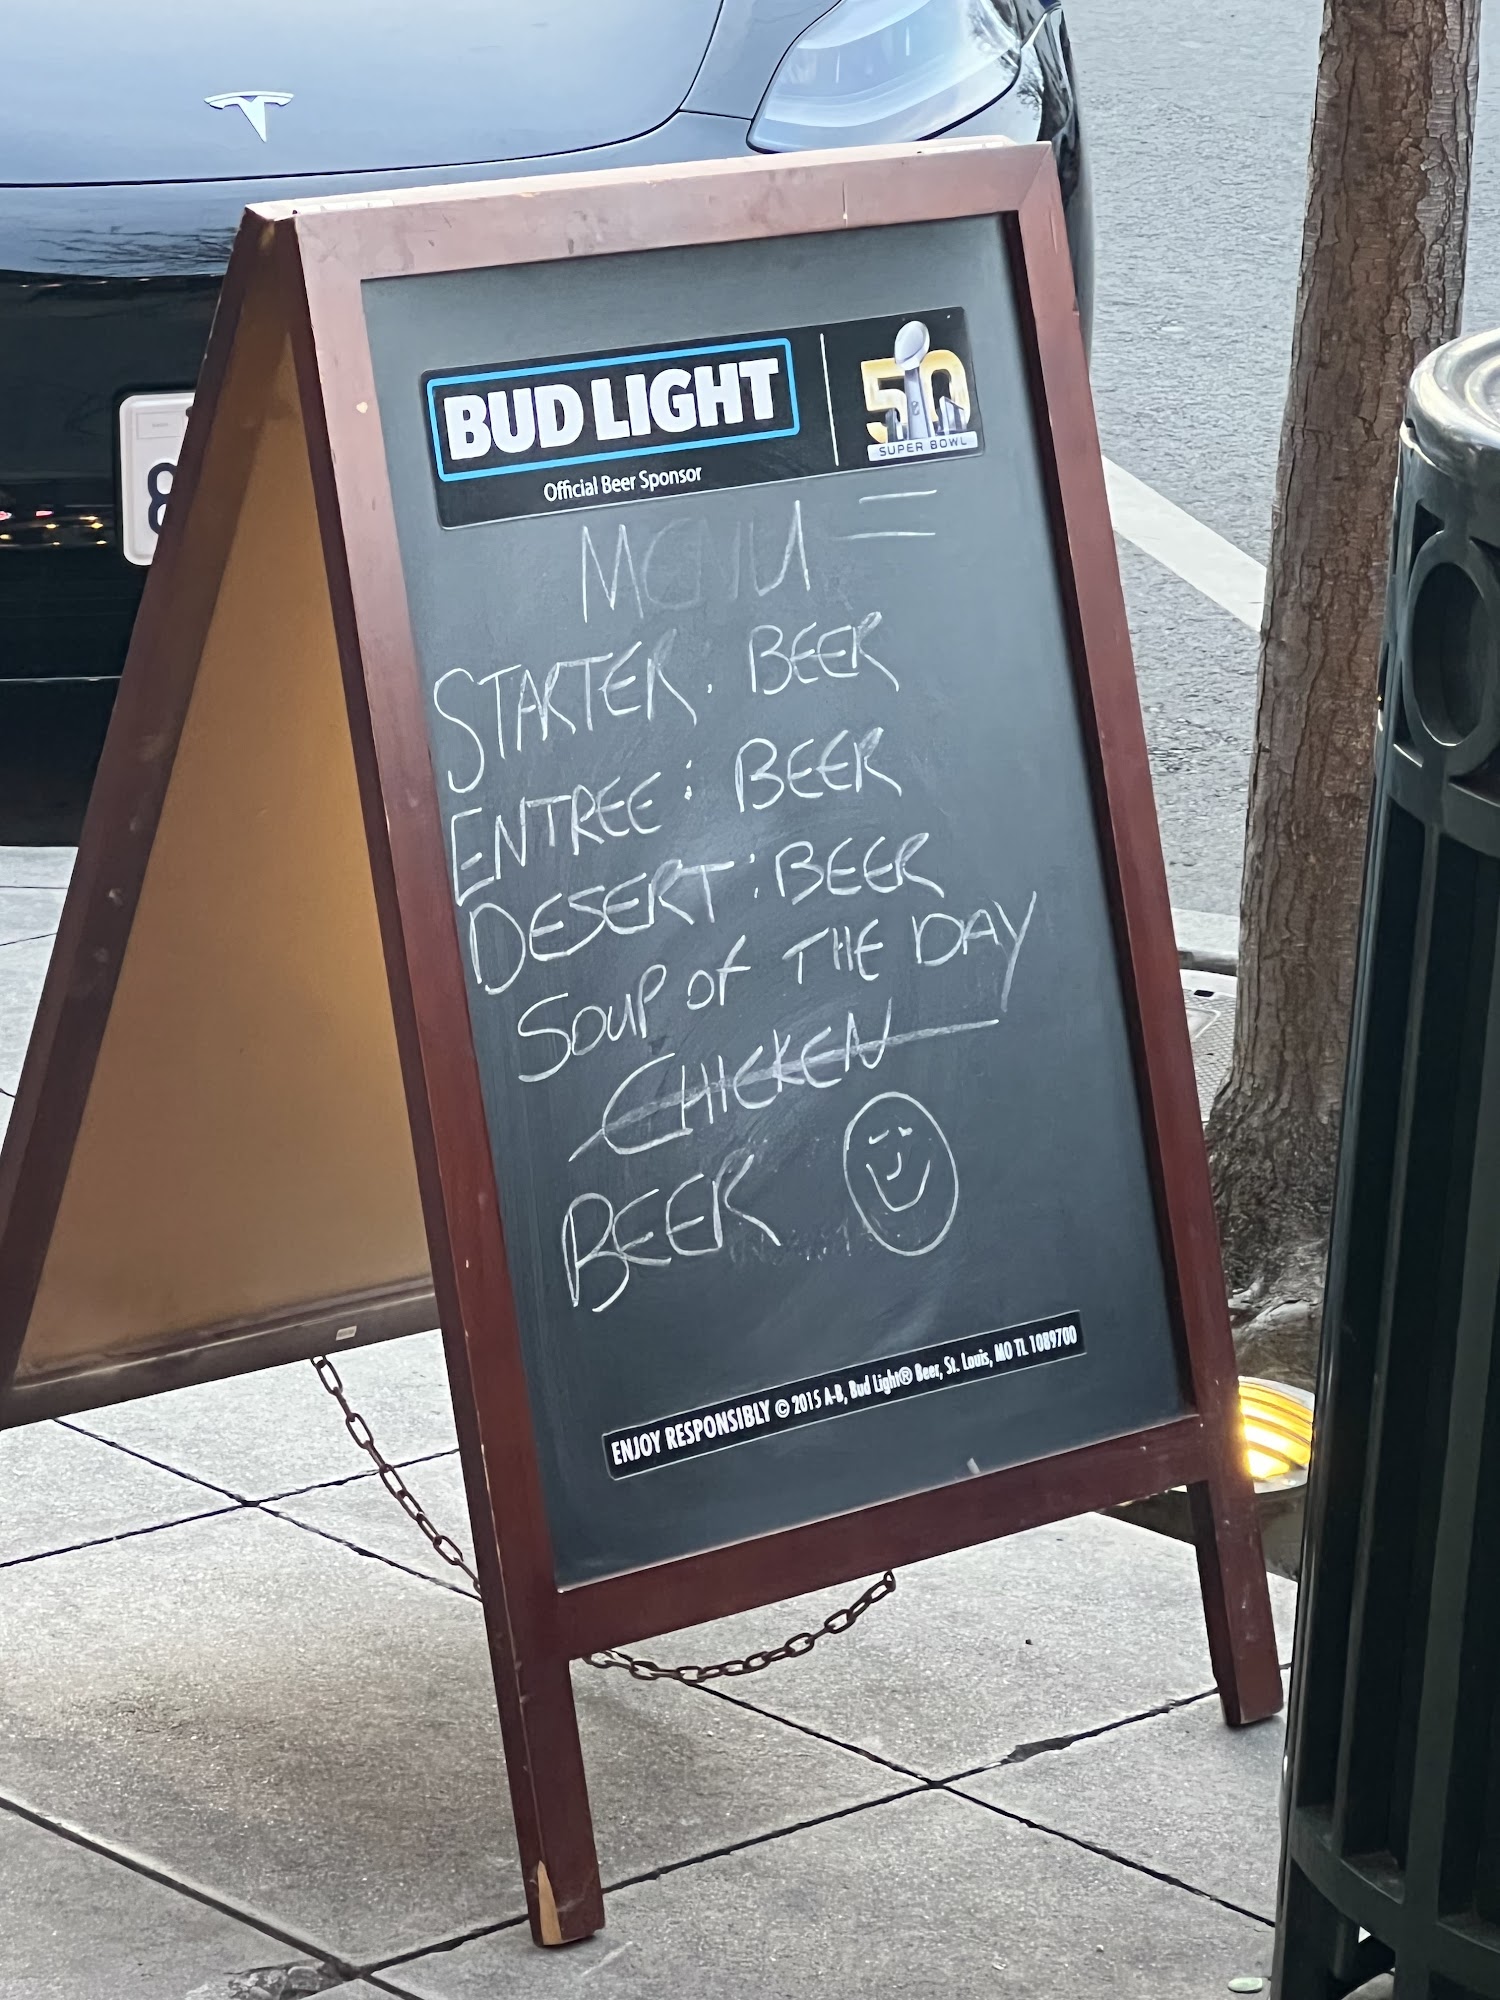 BUD LIGHT
Official Beer Sponsor
50
SUPER BOWL
MENU =
STARTER. BEER
ENTREE: BEER
DESERT: BEER
SOUP OF THE DAY
CHICKEN
BEER
ENJOY RESPONSIBLY © 2015 A-B, Bud Light® Beer, St. Louis, MO TL 1089700
8